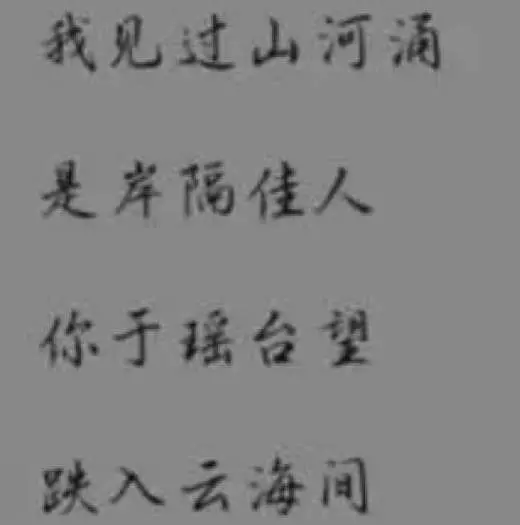 我见过山河涌
是岸隔佳人
你于瑶台望
跌入云海间